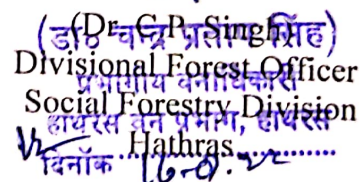 (Dr. C.P. Singh)
(डा० चन्द्र प्रताप सिंह)
Divisional Forest Officer
प्रभागीय वनाधिकारी
Social Forestry Division
हाथरस वन प्रभाग, हाथरस
Hathras
दिनॉक